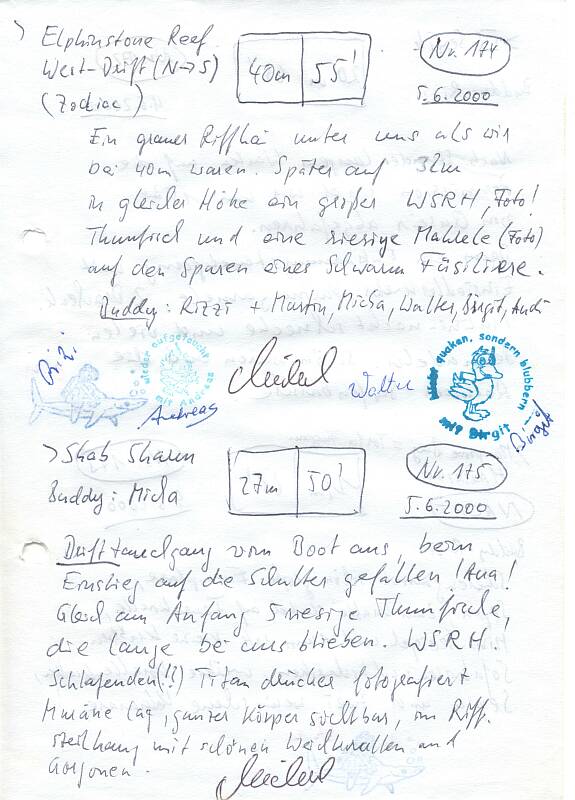 Elphinstone Reef
West-Drift (N→S)
(Zodiac)
40m 55'
Nr. 174
5.6.2000
Ein grauer Riffhai unter uns als wir
bei 40m waren. Später auf 32m
in gleicher Höhe ein großer WSRH, Foto!
Thunfisch und eine riesige Makrele (Foto)
auf den Spuren eines Schwarm Füsiliere.
Buddy: Rizzi + Martin, Micha, Walter, Birgit, Andi
Rizi
wieder aufgetaucht
mit Andreas
Andreas
Michael
Walter
nicht quaken, sondern blubbern
mit Birgit
Birgit
> Shab Sharm
Buddy: Micha
27m 50'
Nr. 175
5.6.2000
Drifttauchgang vom Boot aus, beim
Einstieg auf die Schulter gefallen! Aua!
Gleich am Anfang 5 riesige Thunfische,
die lange bei uns blieben. WSRH.
Schlafenden (!?) Titandrücker fotografiert
Muräne lag, ganzer Körper sichtbar, im Riff.
Steilhang mit schönen Weichkorallen und
Gorgonen.
Michael